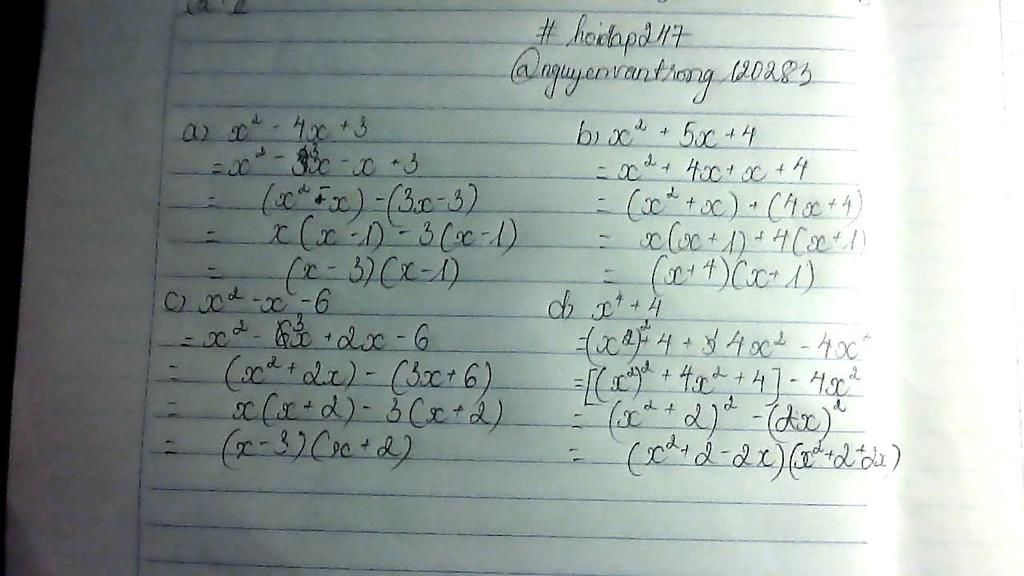 # hoidap247
@nguyenvanthong120283
a) x² - 4x + 3
= x² - 3x - x + 3
= (x² - x) - (3x - 3)
= x(x - 1) - 3(x - 1)
= (x - 3)(x - 1)
b) x² + 5x + 4
= x² + 4x + x + 4
= (x² + x) + (4x + 4)
= x(x + 1) + 4(x + 1)
= (x + 4)(x + 1)
c) x² - x - 6
= x² - 3x + 2x - 6
= (x² + 2x) - (3x + 6)
= x(x + 2) - 3(x + 2)
= (x - 3)(x + 2)
d) x⁴ + 4
= (x²)² + 4 + 4x² - 4x²
= [(x²)² + 4x² + 4] - 4x²
= (x² + 2)² - (2x)²
= (x² + 2 - 2x)(x² + 2 + 2x)